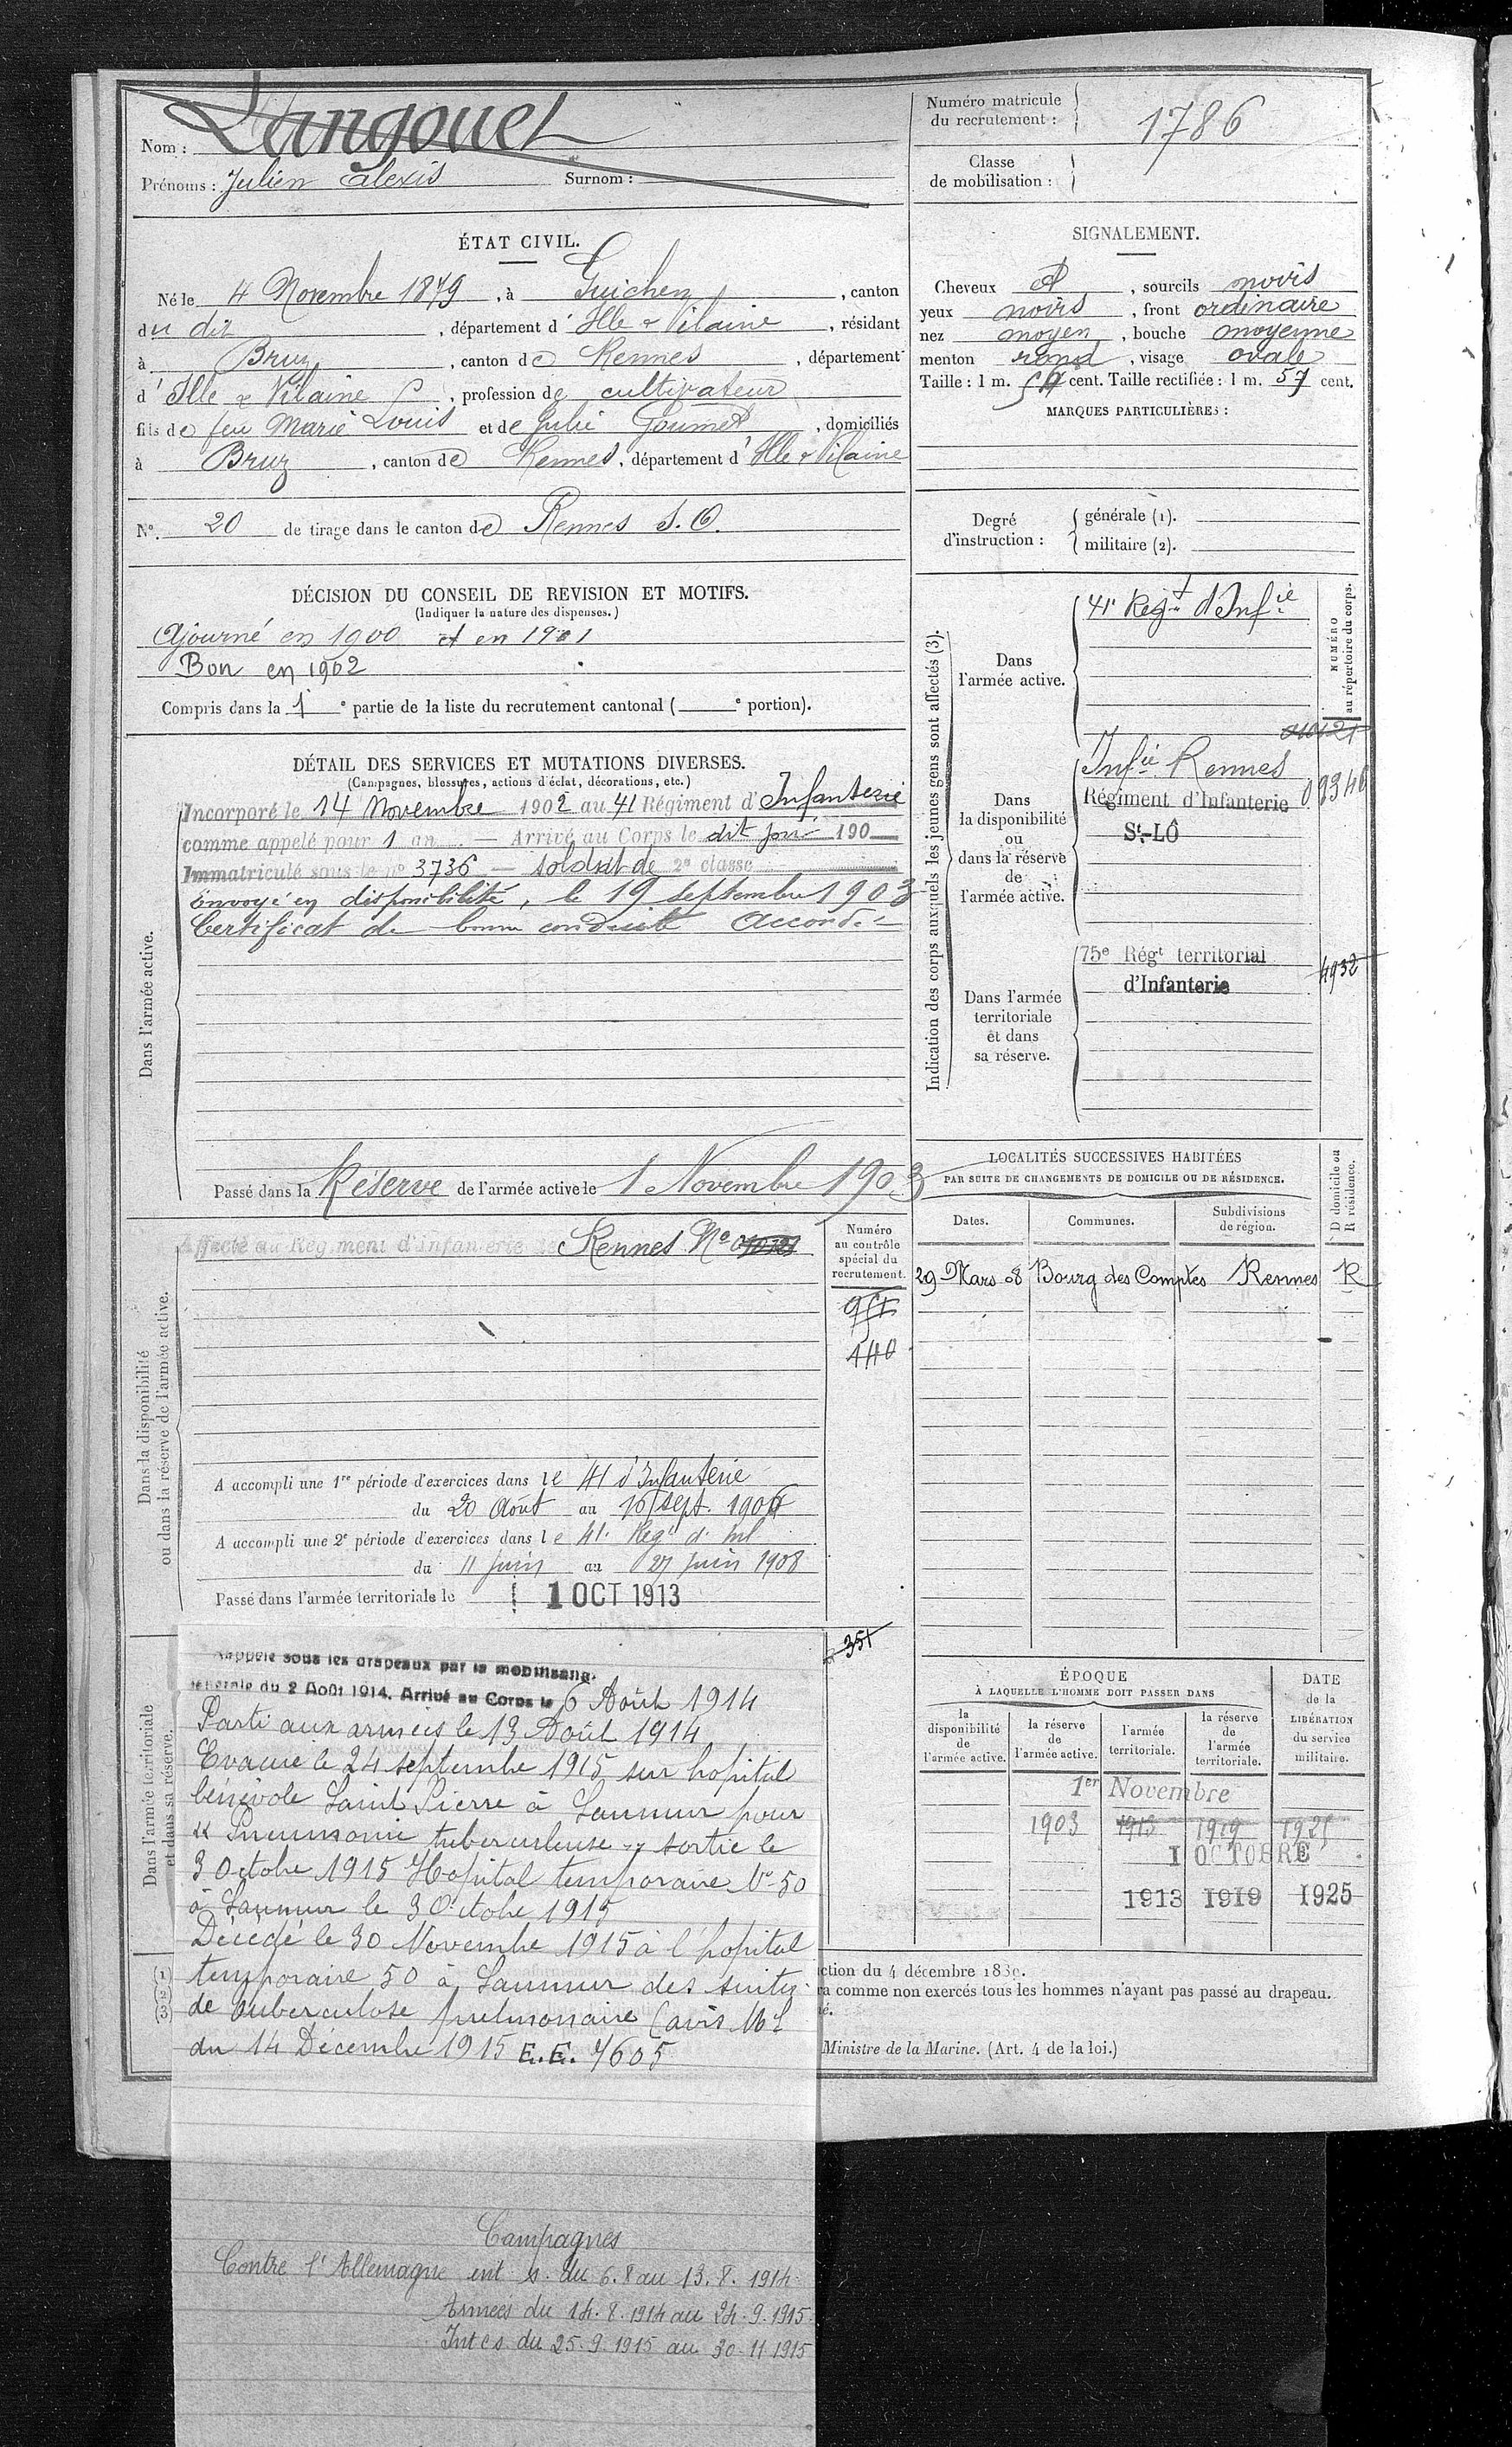 Nom : Langouet
Prénoms : Julien Alexis Surnom :
Numéro matricule du recrutement : 1786
Classe de mobilisation :
ÉTAT CIVIL.
Né le 4 Novembre 1879, à Guichen, canton
du dit, département d'Ille & Vilaine, résidant
à Bruz, canton de Rennes, département
d'Ille & Vilaine, profession de cultivateur
fils de feu Marie Louis et de Julie, domiciliés
à Bruz, canton de Rennes, département d'Ille & Vilaine
N° 20 de tirage dans le canton de Rennes S.O.
DÉCISION DU CONSEIL DE REVISION ET MOTIFS.
(Indiquer la nature des dispenses.)
Ajourné en 1900 et en 1901
Bon en 1902
Compris dans la 1e partie de la liste du recrutement cantonal ( e portion).
DÉTAIL DES SERVICES ET MUTATIONS DIVERSES.
(Campagnes, blessures, actions d'éclat, décorations, etc.)
Dans l'armée active.
Incorporé le 14 Novembre 1902 au 41 Régiment d'Infanterie
comme appelé pour 1 an — Arrivé au Corps le dit jour 190
Immatriculé sous le n° 3736 — soldat de 2e classe
Envoyé en disponibilité, le 19 septembre 1903
Certificat de bonne conduite Accordé
Passé dans la Réserve de l'armée active le 1 Novembre 1903
Dans la disponibilité
ou dans la réserve de l'armée active.
Affecté au Régiment d'Infanterie de Rennes N°
Numéro
au contrôle
spécial du
recrutement.
140
A accompli une 1re période d'exercices dans le 41 d'Infanterie
du 20 Août au 16 sept. 1906
A accompli une 2e période d'exercices dans le 41e Regt d' Inf
du 11 juin au 27 juin 1908
Passé dans l'armée territoriale le 1 OCT 1913
351
Dans l'armée territoriale
et dans sa réserve.
Rappelé sous les drapeaux par la mobilisation
générale du 2 Août 1914. Arrivé au Corps le 6 Août 1914
Parti aux armées le 13 Août 1914
Evacué le 24 septembre 1915 sur hopital
bénévole Saint Pierre à Saumur pour
"Pneumonie tuberculeuse" sortie le
3 Octobre 1915 Hopital temporaire N° 50
à Saumur le 3 Octobre 1915
Décédé le 30 Novembre 1915 à l'hopital
temporaire 50 à Saumur des suites
de tuberculose pulmonaire (avis Ml
du 14 Décembre 1915 E.E. 4605
Campagnes
Contre l'Allemagne int s. du 6.8 au 13.8.1914
Armées du 14.8.1914 au 24.9.1915
Int cs du 25.9.1915 au 30.11.1915
SIGNALEMENT.
Cheveux et, sourcils noirs
yeux noirs, front ordinaire
nez moyen, bouche moyenne
menton rond, visage ovale
Taille : 1 m. cent. Taille rectifiée : 1 m. 57 cent.
MARQUES PARTICULIÈRES :
Degré d'instruction : générale (1).
militaire (2).
Indication des corps auxquels les jeunes gens sont affectés (3).
NUMÉRO
au répertoire du corps.
Dans
l'armée active.
41e Regt d'Infie
Dans
la disponibilité
ou
dans la réserve
de
l'armée active.
Infie Rennes
Régiment d'Infanterie
St-LÔ
Dans l'armée
territoriale
et dans
sa réserve.
75e Régt territorial
d'Infanterie
4932
LOCALITÉS SUCCESSIVES HABITÉES
PAR SUITE DE CHANGEMENTS DE DOMICILE OU DE RÉSIDENCE.
Dates. Communes. Subdivisions de région. D domicile ou R résidence.
29 Mars 08 Bourg des Comptes Rennes R
ÉPOQUE
À LAQUELLE L'HOMME DOIT PASSER DANS
la disponibilité de l'armée active.
la réserve de l'armée active.
l'armée territoriale.
la réserve de l'armée territoriale.
DATE
de la
LIBÉRATION
du service
militaire.
1er Novembre
1903 1913 1919
1 OCTOBRE
1913 1919 1925
(1)
(2)
(3)
ction du 4 décembre 1889.
ra comme non exercés tous les hommes n'ayant pas passé au drapeau.
é.
Ministre de la Marine. (Art. 4 de la loi.)